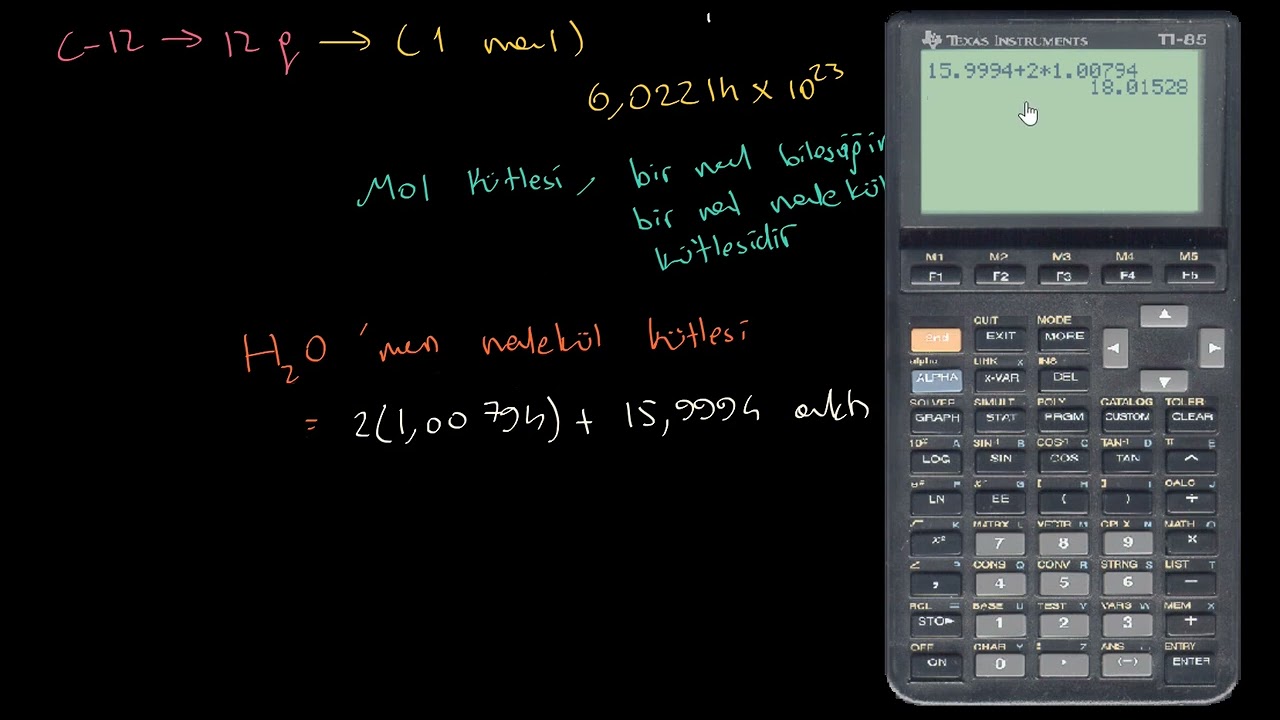 C-12 → 12 g → (1 mol)
6,02214 × 10²³
Mol Kütlesi, bir mol bileşiğin
bir mol molekül
kütlesidir
H₂O 'nun molekül kütlesi
= 2(1,00794) + 15,9994 akb
TEXAS INSTRUMENTS TI-85
15.9994+2*1.00794
18.01528
M1 M2 M3 M4 M5
F1 F2 F3 F4 F5
QUIT MODE
2nd EXIT MORE
alpha LINK X INS
ALPHA x-VAR DEL
SOLVER SIMULT POLY CATALOG TOLER
GRAPH STAT PRGM CUSTOM CLEAR
10ˣ A SIN⁻¹ B COS⁻¹ C TAN⁻¹ D π E
LOG SIN COS TAN ^
eˣ F x⁻¹ G [ H ] I CALC J
LN EE ( ) ÷
√ K MATRX L VECTR M CPLX N MATH O
x² 7 8 9 ×
∠ P CONS Q CONV R STRNG S LIST T
, 4 5 6 −
RCL = BASE U TEST V VARS W MEM X
STO▸ 1 2 3 +
OFF CHAR Y : Z ANS ENTRY
ON 0 . (−) ENTER